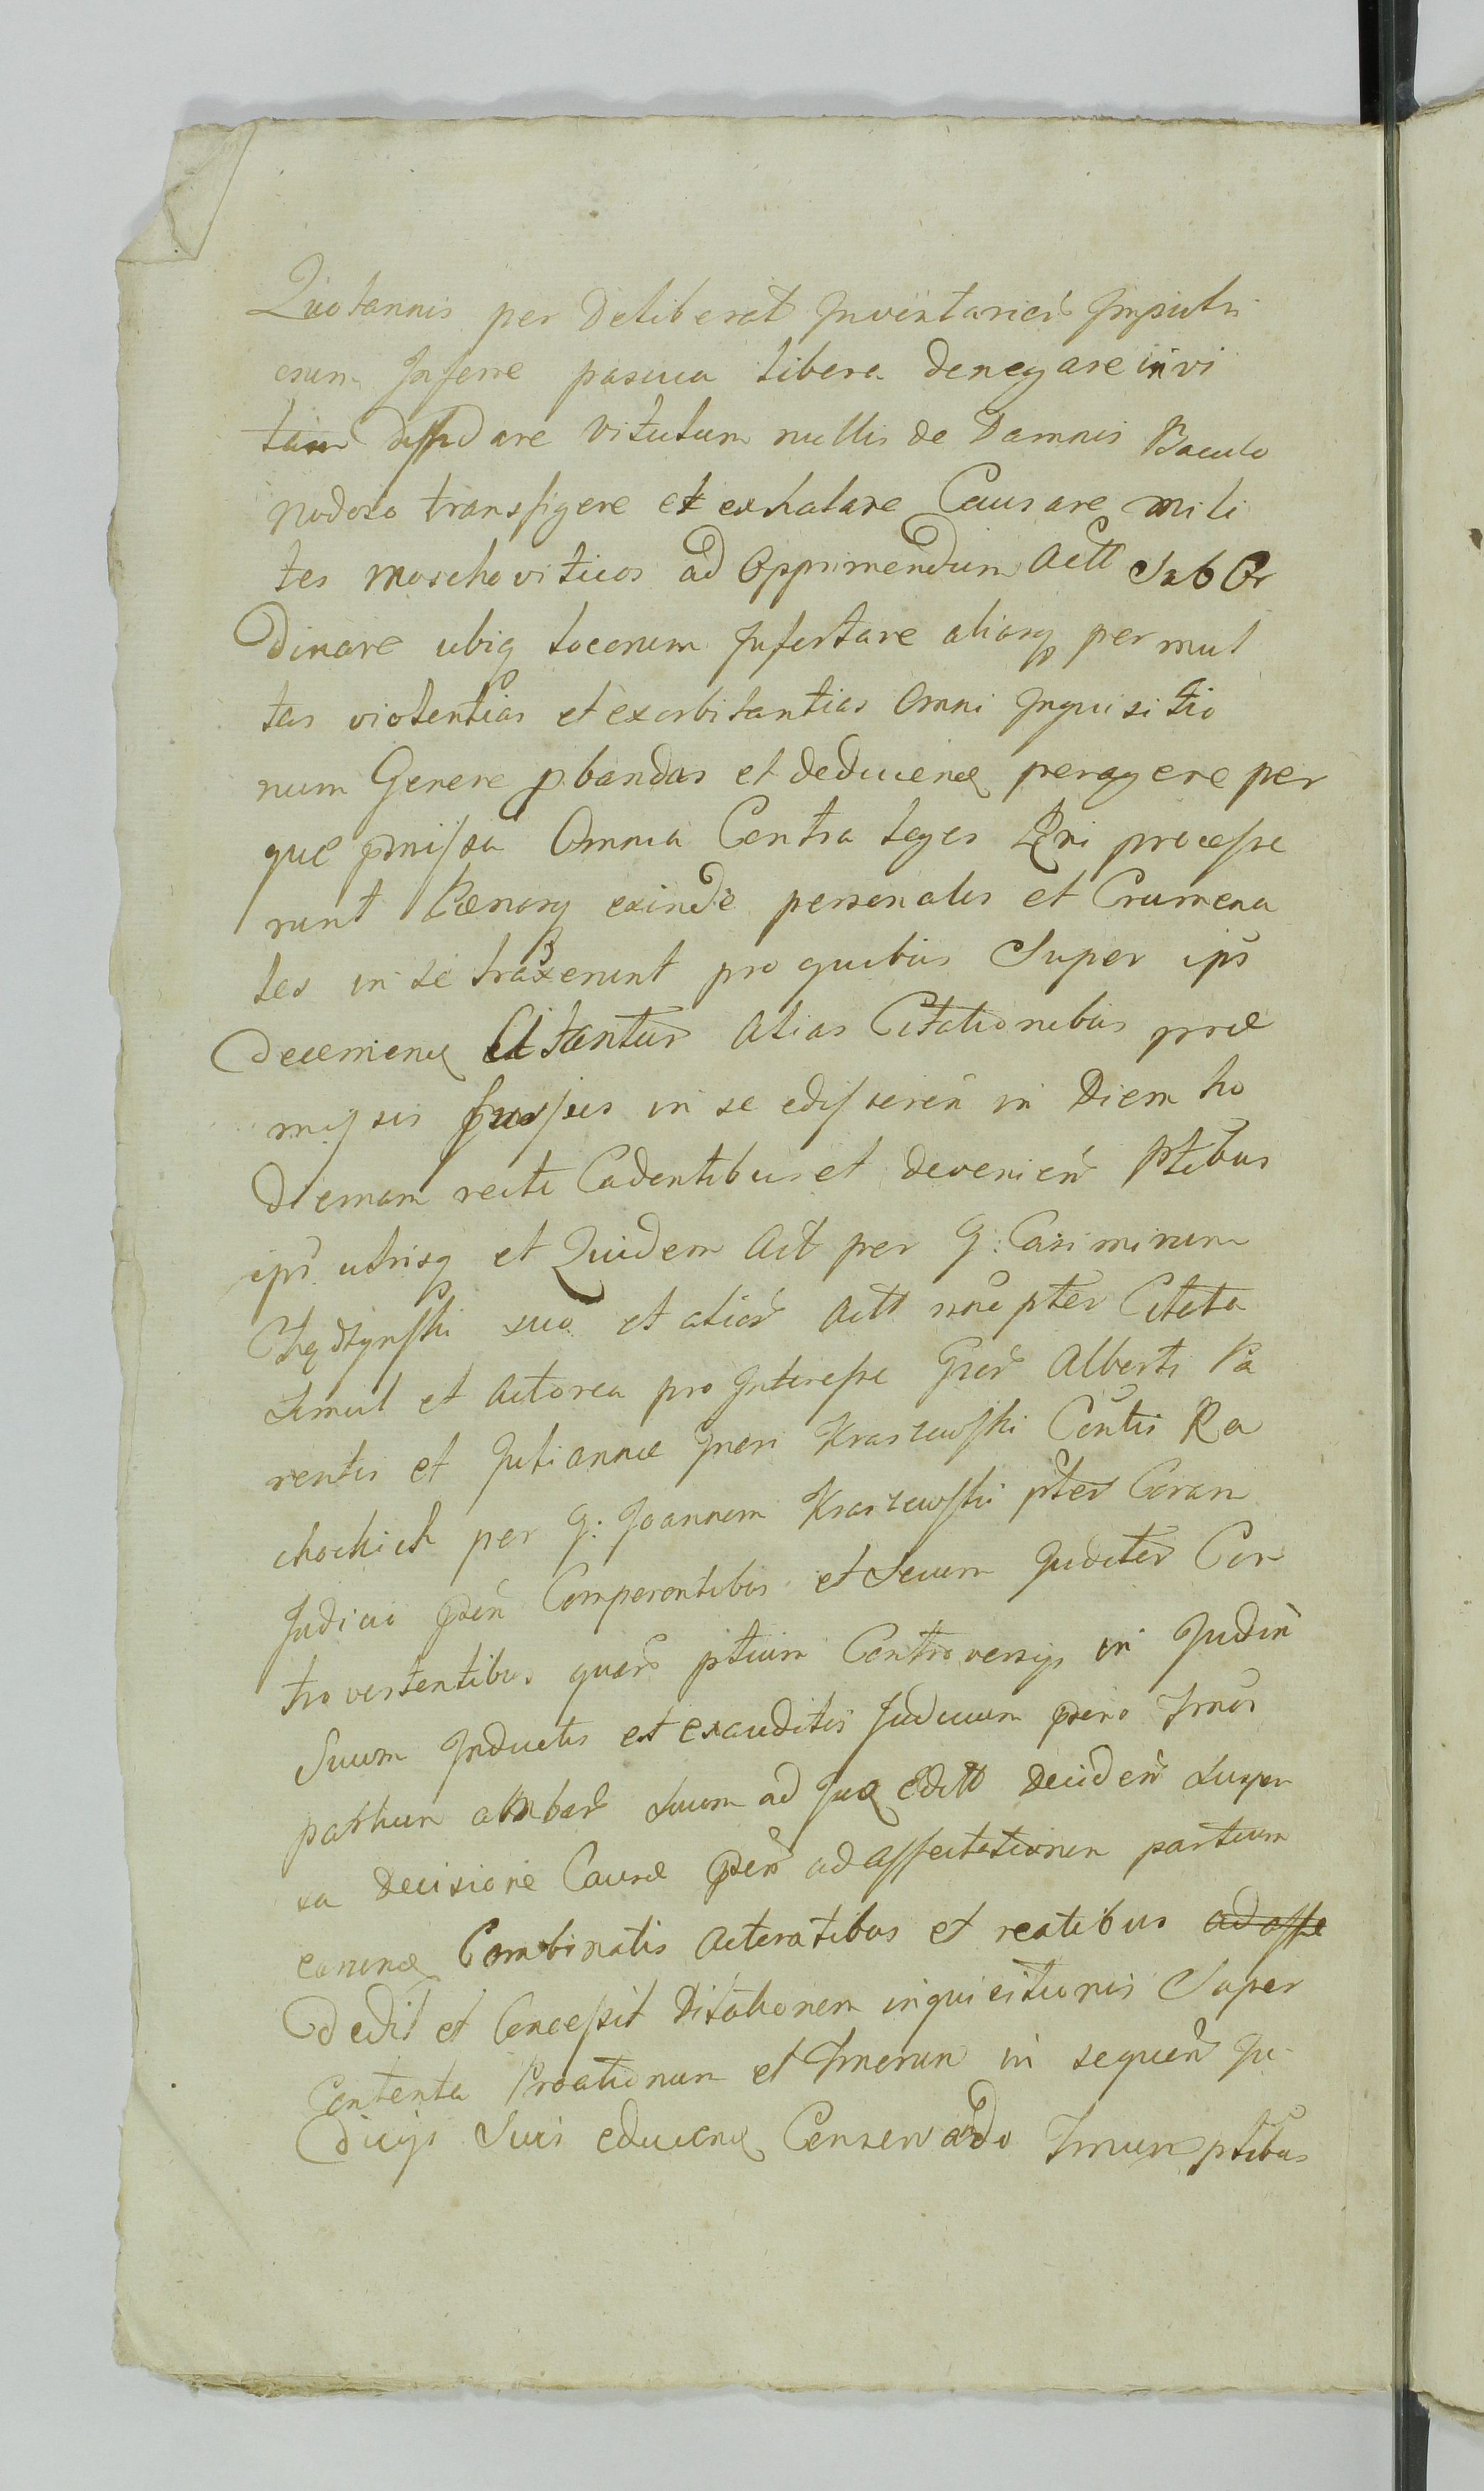 Quotannis per Deliberat Inventarior Impuls
orum Inferre pascua libera denegare in vi
tam diffidare vitulum nullis de Damnis Baculo
nodoso transfigere et exhalare Causare mili
tes moschoviticos ad Opprimendum Actt Sub Or
dinare ubiq locorum Infestare aliasq per mul
tas violentias et exorbitantias Omni Inquisitio
num Genere pbandas et deducend peragere per
que pmissa Omnia Contra leges Rni processe
runt Paenasq exinde personales et Crumena
les in se traxerunt pro quibus Super ips
decernend Citantur alias Citationibus prae
missis in se edisseren in Diem ho
diernam recte Cadentibus et devenien Ptibus
ips utrisq et Quidem Act per G: Casimirum
suo et alior Actt noe pter Citata
Simul et Actorea pro Interesse Gser Alberti Pa
rentis et Julianna Gnen Kraszewski Contis Ra
chockich per G: Joannem Kraszewski pter Coram
Judicio psen Comparentibus et Secum Judicter Con
trovertentibus quar ptium Controversijs in Judin
Suum Inductis et exauditis Judicium psens Tmos
Suum ad Jud Editt Deciden Suspen
sa Decisione Causae psen ad affectationem partium
earund Combinatis Actoratibus et reatibus ad affe
dedit et Concessit Dilationem inquisitionis Super
Contenta Proationum et Tmorum in sequen Ju-
dicijs Suis educend Conservando Tmum ptibus